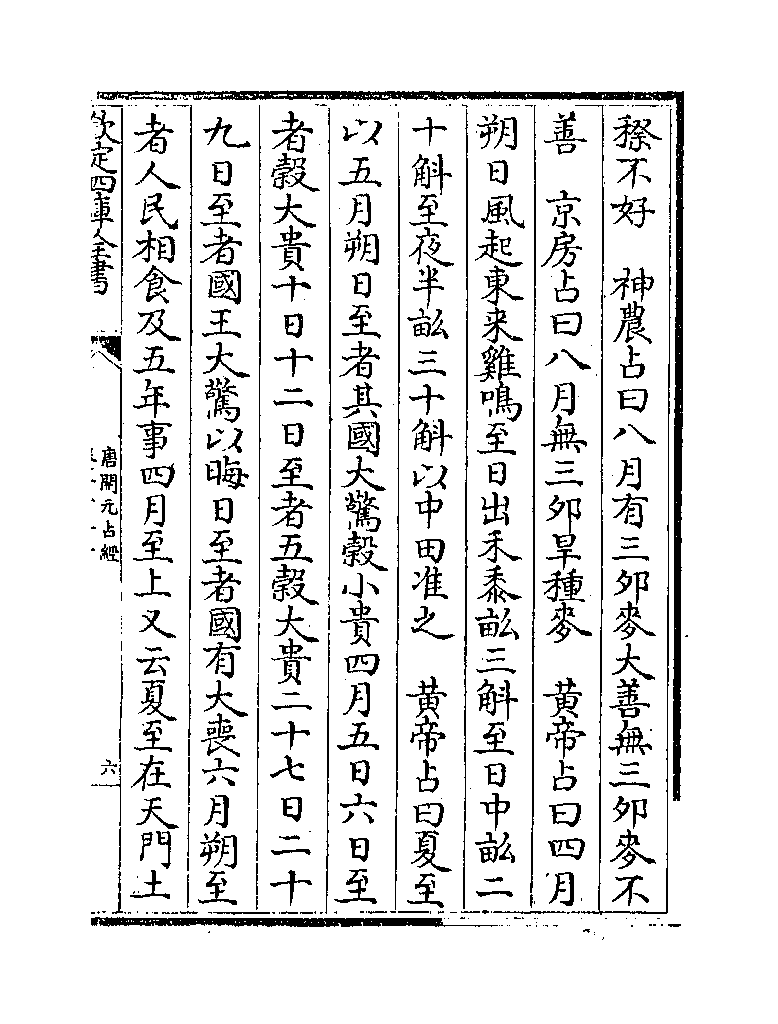 穄不好　神農占曰八月有三卯麥大善無三卯麥不
善　京房占曰八月無三卯旱種麥　黄帝占曰四月
朔日風起東来雞鳴至日出禾黍畝三斛至日中畝二
十斛至夜半畝三十斛以中田准之　黄帝占曰夏至
以五月朔日至者其國大驚穀小貴四月五日六日至
者穀大貴十日十二日至者五穀大貴二十七日二十
九日至者國王大驚以晦日至者國有大喪六月朔至
者人民相食及五年事四月至上又云夏至在天門土
欽定四庫全書
唐開元占經
六